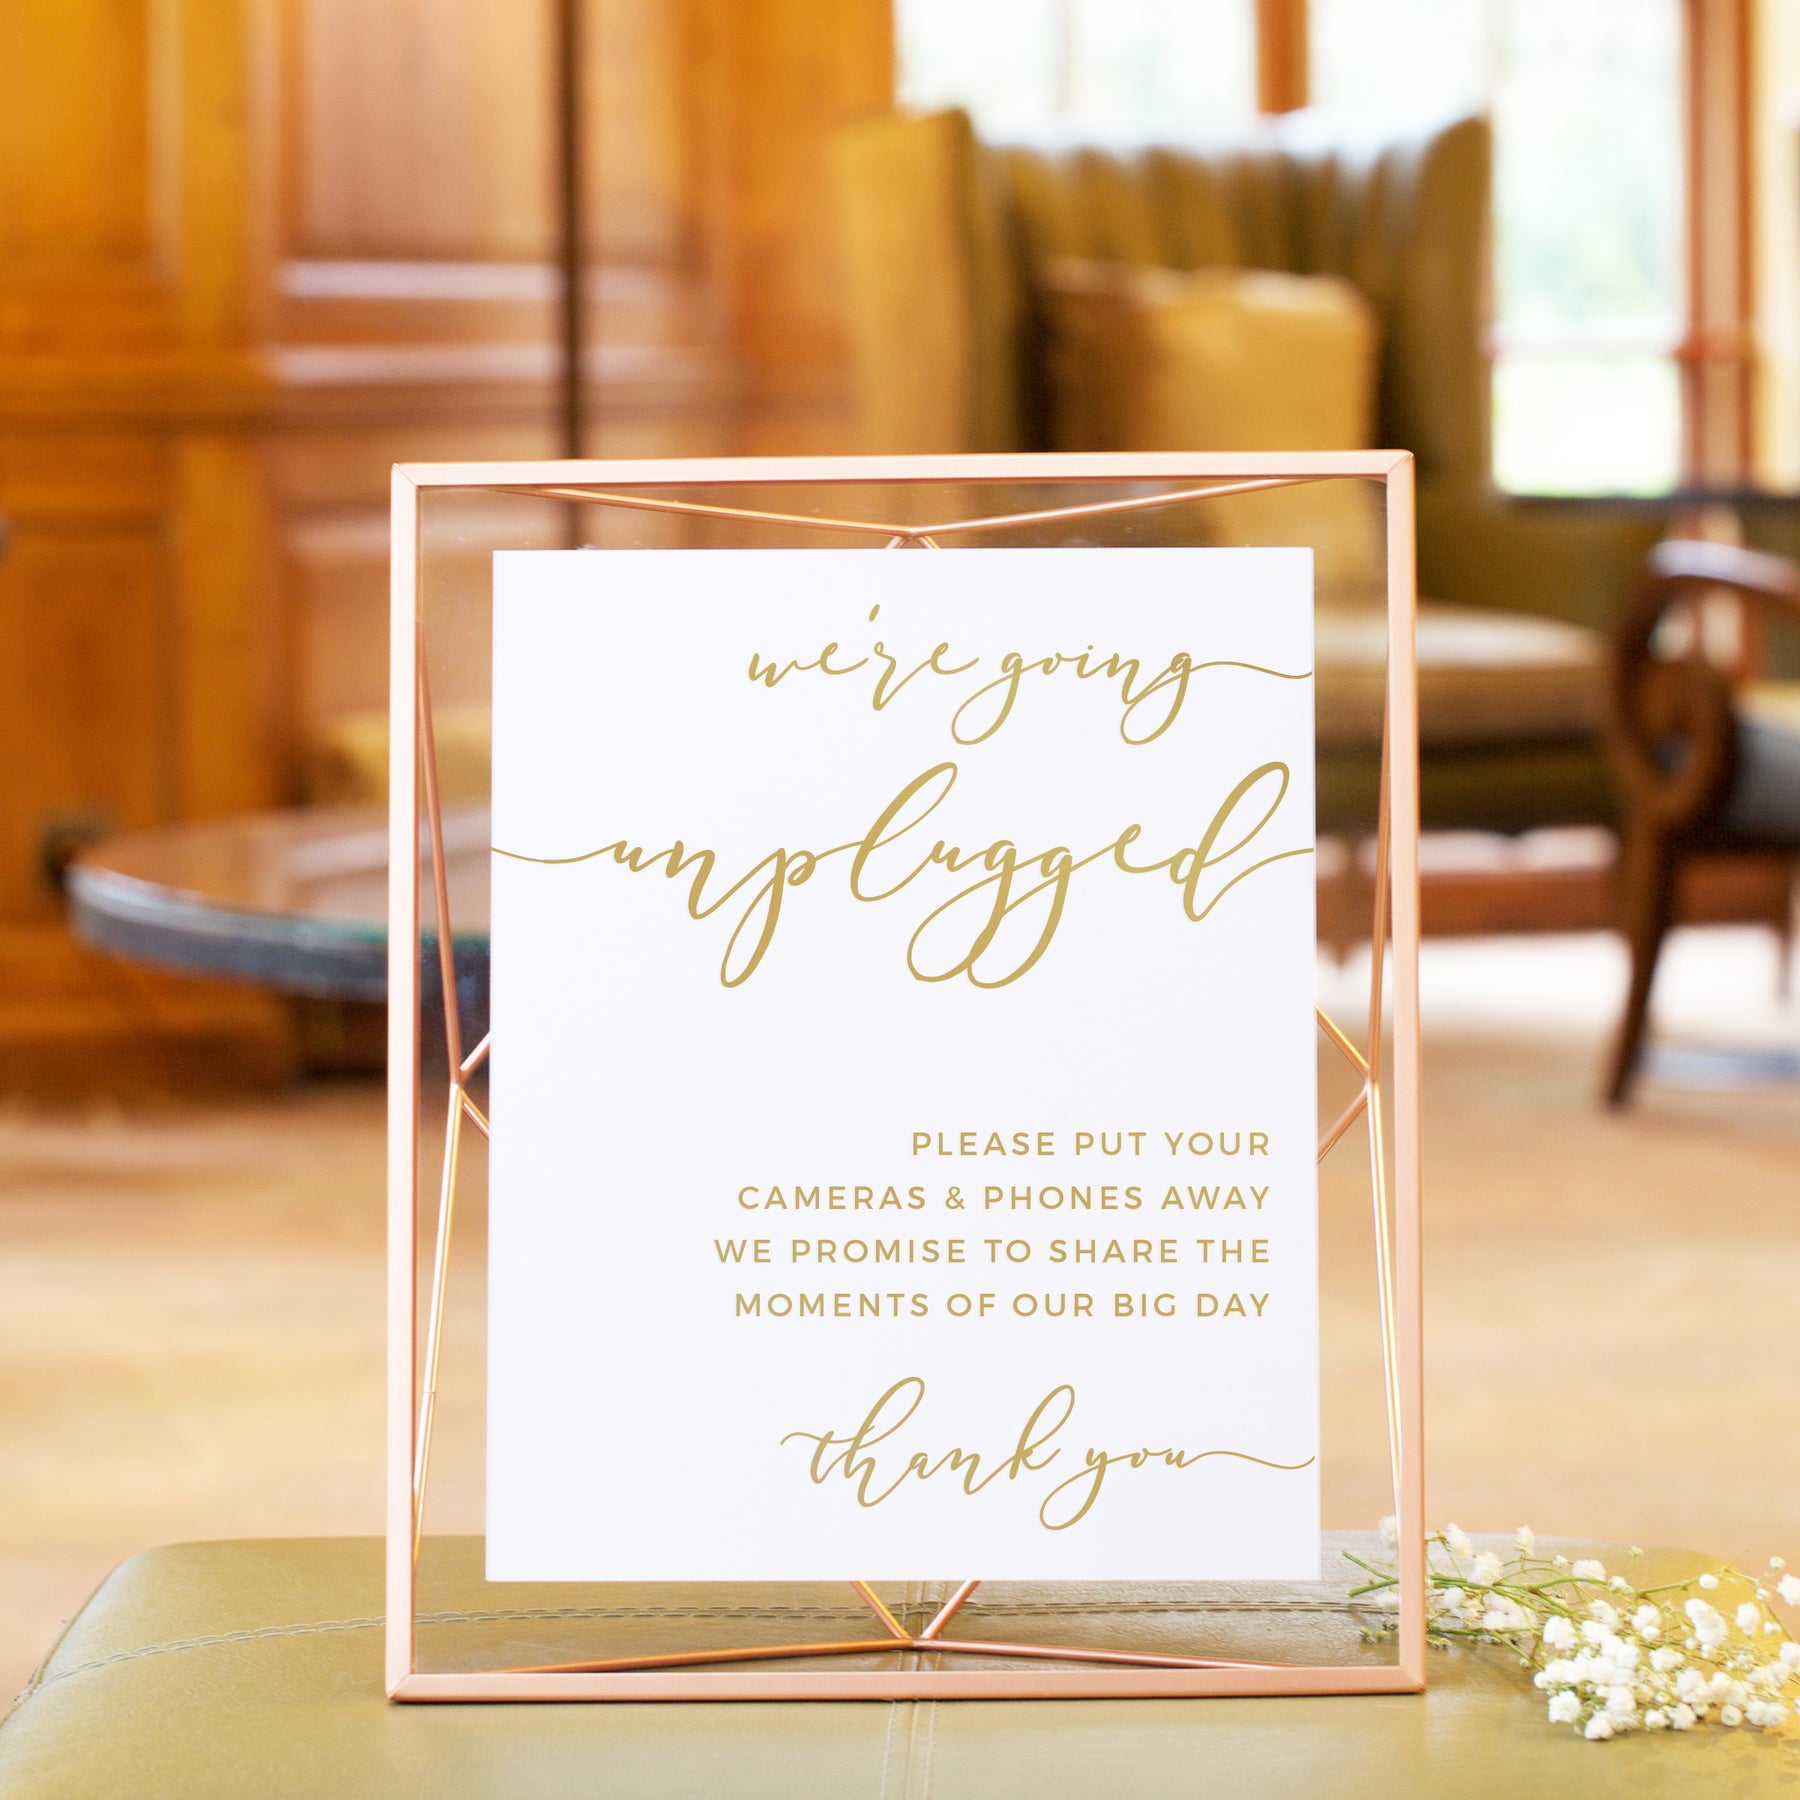 we're going
unplugged
PLEASE PUT YOUR
CAMERAS & PHONES AWAY
WE PROMISE TO SHARE THE
MOMENTS OF OUR BIG DAY
thank you